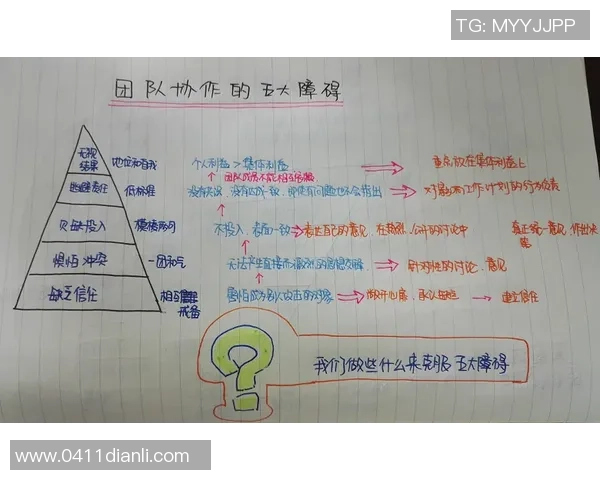 TG: MYYJJPP
团队协作的五大障碍
无视结果 地位和自我 个人利益 > 集体利益 重点放在集体利益上
团队成员不能相互
逃避责任 低标准 没有共识,没有达成一致,即使有问题也不会指出
欠缺投入 模棱两可 不投入,表面一致 表达自己的意见,在激烈、公开的讨论中 真正统一意见,作出决策
惧怕冲突 一团和气 无法产生直接而激烈的思想交锋 针对性的讨论、意见
缺乏信任 相互戒备 害怕成为别人攻击的对象 敞开心扉,承认 建立信任
我们做些什么来克服五大障碍
www.0411dianli.com